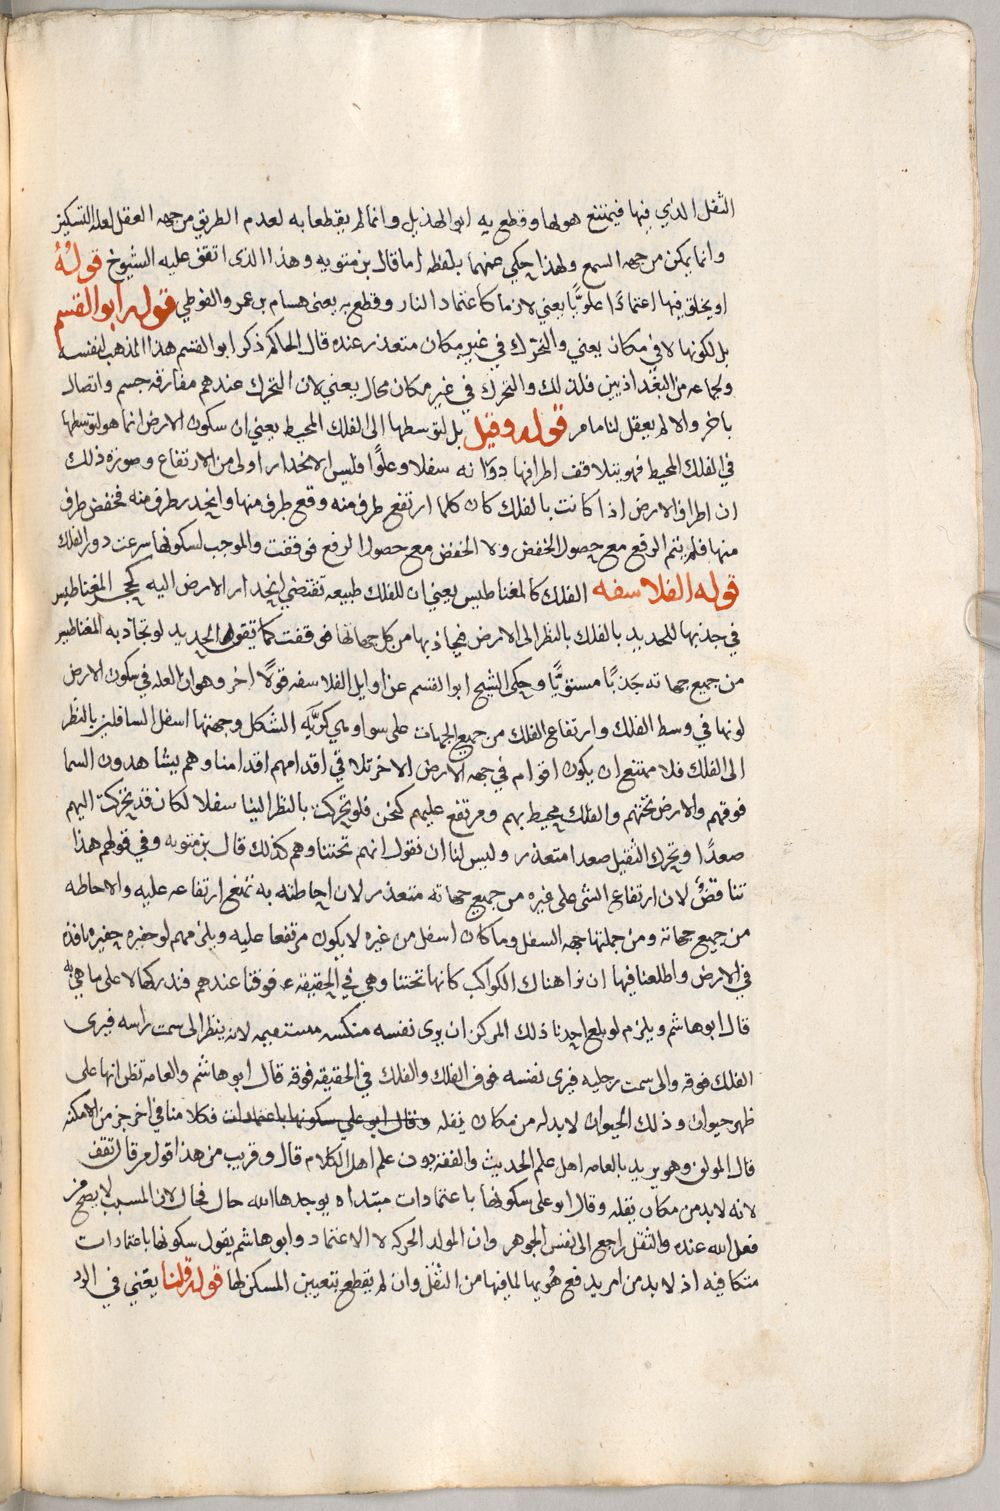 الثقل الذي فيها فيمتنع هولها وقطع به ابو الهذيل وانما لم يقطعا به لعدم الطريق من جهه العقل لعله التسكين
وانما يمكن من جهه السمع ولهذا حكي عنهما بلفظه اما قال بن متويه وهذا الذى اتفق عليه الشيوخ قولُهُ
او يخلق فيها اعتمادًا علويًّا يعني لازما كاعتماد النار وقطع به يعني هسام بن عمر والفوطي قوله ابو القسم
بل لكونها لا في مكان يعني والتحرّك في غير مكان متعذر عنده قال الحاكم ذكر ابو القسم هذا المذهب لنفسه
ولجماعه من البغداذيين فلذلك والتحرك في غير مكان محال يعني لان التحرك عندهم مفارقه جسم واتصال
باخر والا لم يعقل لنا مامر قوله وقيل بل لتوسطها الى الفلك المحيط يعني ان سكون الارض انما هو لتوسطها
في الفلك المحيط فهو يتلاقف اطرافها دورانه سفلا وعلوًا فليس الانحدار اولى من الارتفاع وصوره ذلك
ان اطراف الارض اذا كانت بالفلك كان كلما ارتفع طرف منه وقع طرف منها وانحدر طرف منه فخفض طرف
منها فلم يتم الرفع مع حصول الخفض ولا الخفض مع حصول الرفع فوقفت والموجب لسكونها سرعت دور الفلك
قوله الفلاسفه الفلك كالمغناطيس يعني ان للفلك طبيعه تقتضي انحدار الارض اليه كحجر المغناطيس
في جذبها للحديد بالفلك بالنظر الى الارض فيجاذبها من كل جهاتها فوقفت كما يقول الحديد لو تجاذبه المغناطيس
من جميع جهاته جَذبًا مستوِيًّا وحكى الشيخ ابو القسم عن اوايل الفلاسفه قولًا اخر وهو ان العله في سكون الارض
لونها في وسط الفلك وارتفاع الفلك من جميع الجهات على سوا وهي كرّيَّه الشكل وجهتها اسفل السافلين بالنظر
الى الفلك فلا ممتنع ان يكون اقوام في جهه الارض الاخر تلاقي اقدامهم اقدامنا وهم يشاهدون السما
فوقهم والارض تحتهم والفلك محيط بهم ومرتفع عليهم كنحن فلو تحركت بالنظر الينا سفلا لكان قد تحركت اليهم
صعدًا وتحرك الثقيل صعدا متعذر وليس لنا ان نقول انهم تحتنا وهم كذلك قال بن متويه وفي قولهم هذا
تناقضٌ لان ارتفاع الشى على غيره من جميع جهاته متعذر لان احاطته به تمنع ارتفاعه عليه والاحاطه
من جميع جهاته ومن جملتها جهه السفل وما كان اسفل من غيره لا يكون مرتفعا عليه ويلزمهم لو حفره حفيره نافذه
في الارض واطلعنا فيها ان نرا هناك الكواكب كانها تحتنا وهي في الحقيقه فوقنا عندهم فندركها لا على ما هي به
قال ابو هاشم ويلزم لو بلغ احدنا ذلك المركز ان يرى نفسه منكسه مستقيمه لانه ينظر الى سمت راسه فيرى
الفلك فوقه والى سمت رجليه فيرى نفسه فوق الفلك والفلك في الحقيقه فوقه قال ابو هاشم والعامه تظن انها على
ظهر حيوان وذلك الحيوان لا بد له من مكان يقله وقال ابو علي سكونها باعتمادات فكلامنا في اخر جز من الامكنه
قال المولف وهو يريد بالعامه اهل علم الحديث والفقه دون علم اهل الكلام قال وقريب من هذا قول من قال تقف
لانه لا بد من مكان يقله وقال ابو على سكونها باعتمادات مبتداه يوجدها الله حال فحال لان المسبب لا يصح من
فعل الله عنده والثقل راجع الى نفس الجوهر وان المولد الحركه لا الاعتماد وابو هاشم يقول سكونها باعتمادات
متكافيه اذ لا بد من امر يدفع هُويها لما فيها من الثقل وان لم يقطع بتعيين المسكن لها قوله قلنا يعني في الرد